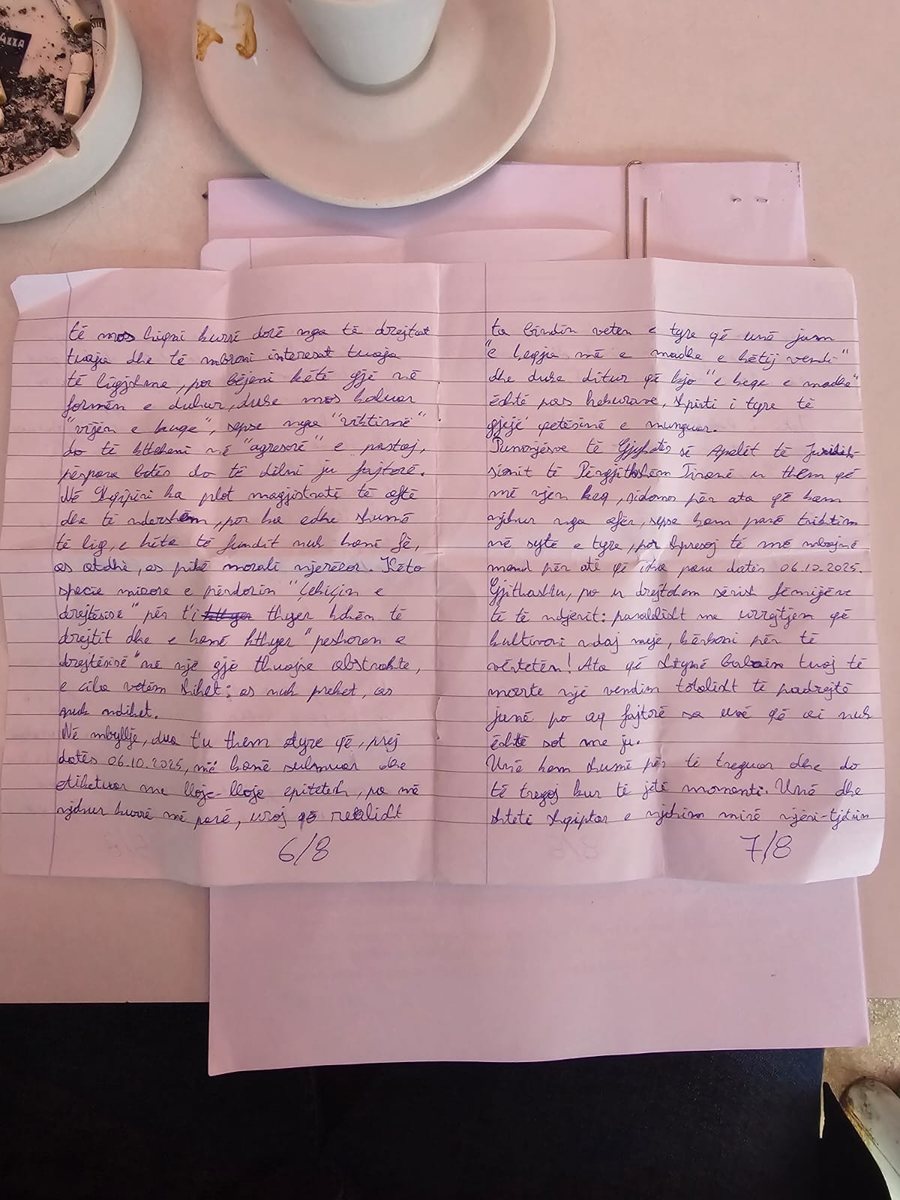 AZZA
të mos hiqni kurrë dorë nga të drejtat
tuaja dhe të mbroni interesat tuaja
të ligjshme, por bëjeni këtë gjë në
formën e duhur, duke mos kaluar
"vijën e kuqe", sepse nga "viktimë"
do të ktheheni në "agresorë" e pastaj,
përpara botës do të dilni ju fajtorë.
Në Shqipëri ka plot magjistratë të aftë
dhe të ndershëm, por ka edhe shumë
të lig, e këta të fundit nuk kanë fe,
as atdhe, as pikë morali njerëzor. Këto
specie mizore e përdorin "çekiçin e
drejtësisë" për t'i thyer kokën të
drejtit dhe e kanë kthyer "peshoren e
drejtësisë" në një gjë thuajse abstrakte,
e cila vetëm shihet; as nuk preket, as
nuk ndihet.
Në mbyllje, dua t'u them atyre që, prej
datës 06.10.2025, më kanë sulmuar dhe
etiketuar me lloj-lloje epitetesh, pa më
njohur kurrë më parë, uroj që realisht
6/8
ta bindin veten e tyre që unë jam
"e keqja më e madhe e këtij vendi"
dhe duke ditur që kjo "e keqe e madhe"
është pas hekurave, shpirti i tyre të
gjejë qetësinë e munguar.
Punonjësve të Gjykatës së Apelit të Juridik-
sionit të Përgjithshëm Tiranë u them që
më vjen keq, sidomos për ata që kam
njohur nga afër, sepse kam parë trishtim
në sytë e tyre, por shpresoj të më ndajnë
mend për atë që isha para datës 06.10.2025.
Gjithashtu, po u drejtohem sërish fëmijëve
të të ndjerit: paralelisht me urrejtjen që
kultivoni ndaj meje, kërkoni për të
vërtetën! Ata që shtynë babain tuaj të
merrte një vendim totalisht të padrejtë
janë po aq fajtorë sa unë që ai nuk
është sot me ju.
Unë kam shumë për të treguar dhe do
të tregoj kur të jetë momenti. Unë dhe
shteti shqiptar e njohim mirë njëri-tjetrin
7/8